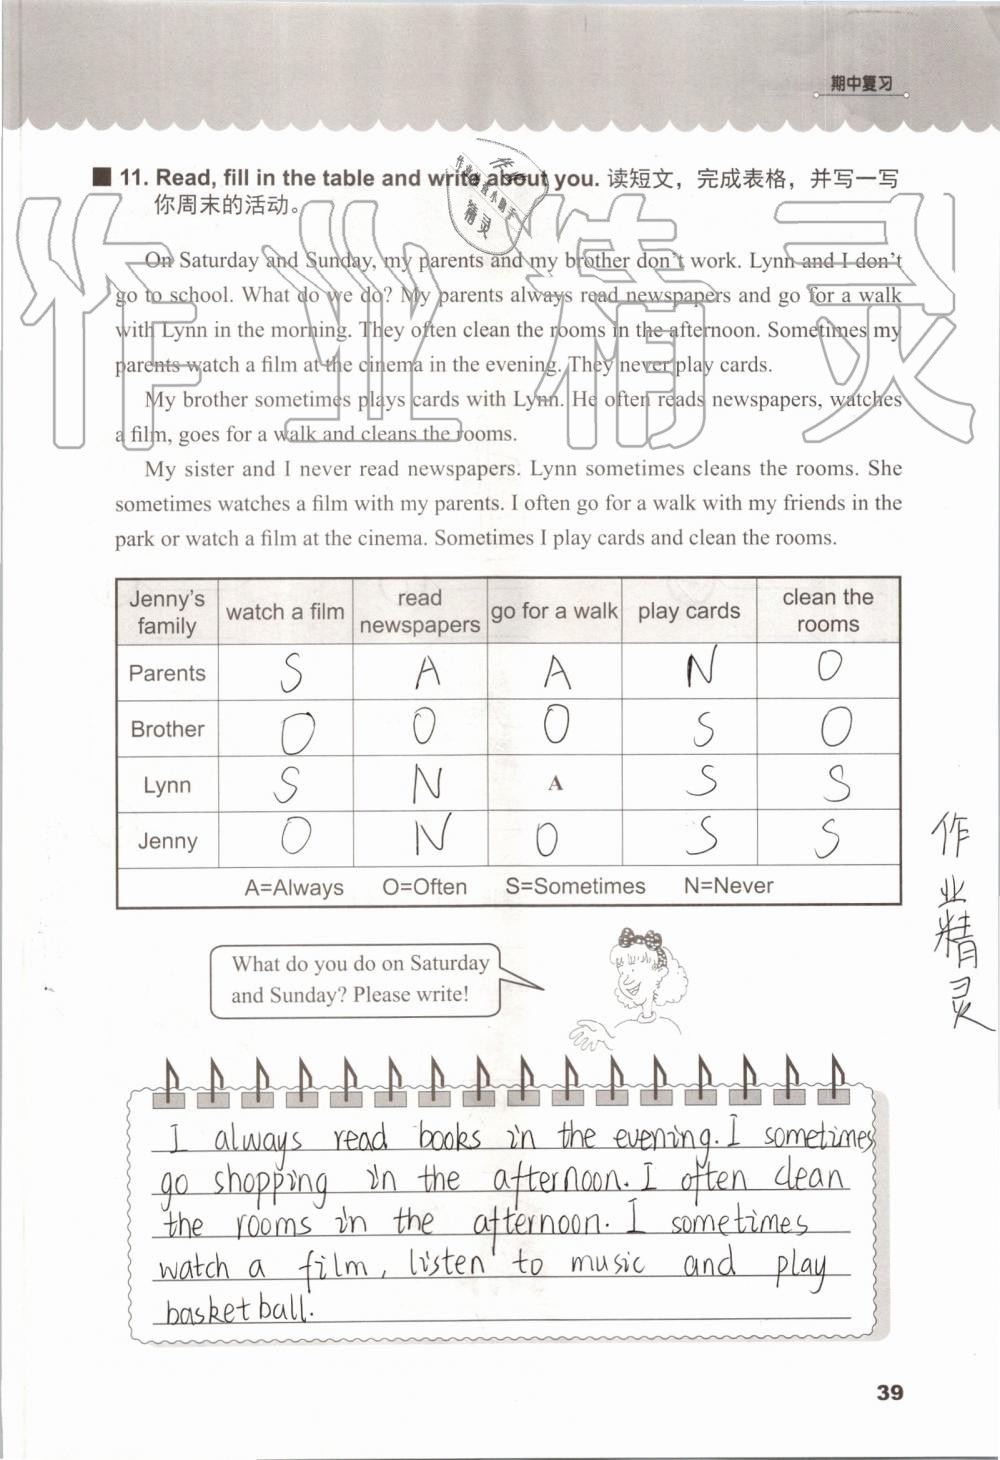 期中复习
11. Read, fill in the table and write about you. 读短文，完成表格，并写一写
你周末的活动。
On Saturday and Sunday, my parents and my brother don't work. Lynn and I don't
go to school. What do we do? My parents always read newspapers and go for a walk
with Lynn in the morning. They often clean the rooms in the afternoon. Sometimes my
parents watch a film at the cinema in the evening. They never play cards.
My brother sometimes plays cards with Lynn. He often reads newspapers, watches
a film, goes for a walk and cleans the rooms.
My sister and I never read newspapers. Lynn sometimes cleans the rooms. She
sometimes watches a film with my parents. I often go for a walk with my friends in the
park or watch a film at the cinema. Sometimes I play cards and clean the rooms.
Jenny's family watch a film read newspapers go for a walk play cards clean the rooms
Parents S A A N O
Brother O O O S O
Lynn S N A S S
Jenny O N O S S
A=Always O=Often S=Sometimes N=Never
What do you do on Saturday
and Sunday? Please write!
I always read books in the evening. I sometimes
go shopping in the afternoon. I often clean
the rooms in the afternoon. I sometimes
watch a film, listen to music and play
basketball.
作业精灵
39
作业精灵